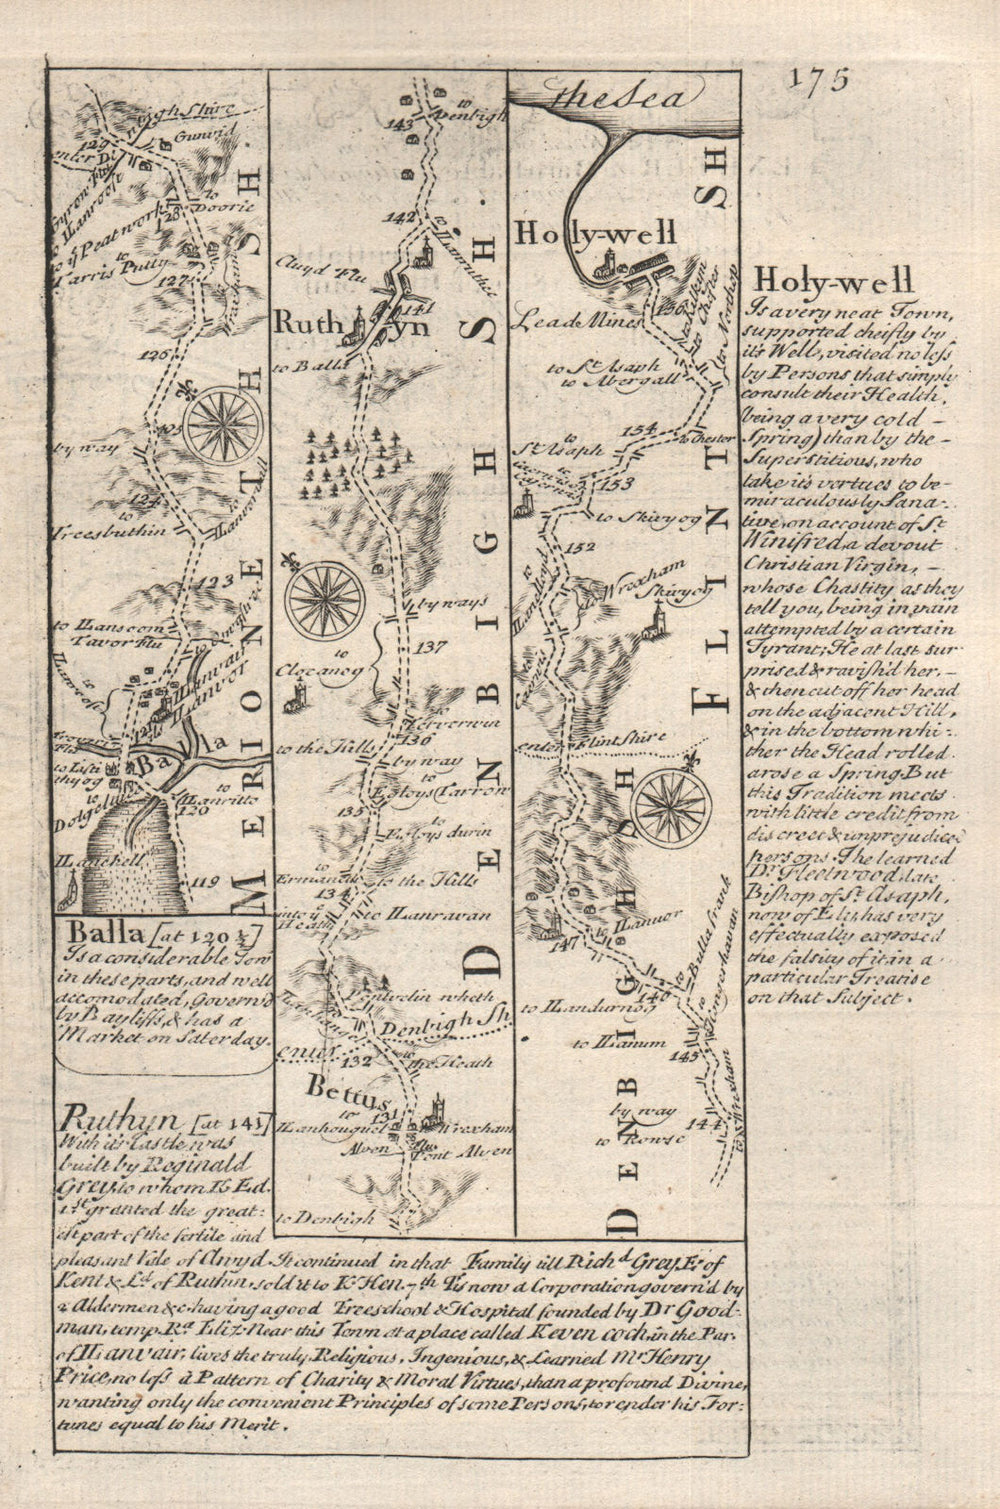 175
the Sea
129
Gunvid
to Doorie
128
to ye Peatwork
Tarris Pully
127
126
by way
124
to
Treesbuthin
123
to
Tavor Flu
Balla
to
Dolgelu
to
120
Llanchell
119
MERIONETH SH
Balla [at 120½]
Is a considerable Town
in these parts, and well
accomodated, Govern'd
by Bayliffs, & has a
Market on Saterday.
to
Denbigh
143
142
to
Cluyd Flu
141
Ruthyn
to Balla
by ways
137
to
Clocanog
to
136
to the Hills
by way
to
135
to
134
to the Hills
to Llanravan
Denbigh Sh
enter
132
to
the Heath
Bettus
to
131
Wrexham
Alven
Flu
Pont Alven
to Denbigh
DENBIGH SH.
Holy-well
156
Lead Mines
to Chester
to Northop
to St. Asaph
to Abergall
154
to Chester
to
St. Asaph
153
to Skivyog
152
to
Wrexham
Skivyog
enter Flintshire
FLINT SH
147
to Llanuor
146
to
to Llandurnog
to
to Llanum
145
by way
to Rowse
144
to Wrexham
DENBIGH SH
Holy-well
Is a very neat Town,
supported cheifly by
it's Well, visited no less
by Persons that simply
consult their Health,
(being a very cold –
Spring) than by the –
Superstitious, who
take its vertues to be –
miraculously Sana-
tive, on account of St.
Winifred, a devout
Christian Virgin, –
whose Chastity as they
tell you, being in vain
attempted by a certain
Tyrant; He at last sur
prised & ravish'd her, –
& then cut off her head
on the adjacent Hill,
& in the bottom whi-
ther the Head rolled
arose a Spring. But
this Tradition meets
with little credit from
discreet & unprejudiced
persons. The learned
Dr. Fleetwood, late
Bishop of St. Asaph,
now of Ely, has very
effectually exposed
the falsity of it in a
particular Treatise
on that Subject.
Ruthyn [at 141]
With it's Castle was
built by Reginald
Grey, to whom K. Ed.
1st. granted the great-
est part of the fertile and
pleasant Vale of Clwyd. It continued in that Family till Richd. Grey, E. of
Kent & Ld. of Ruthin, sold it to K. Hen. 7th. Tis now a Corporation govern'd by
2 Aldermen &c. having a good Freeschool & Hospital founded by Dr. Good-
man, temp. Ra. Eliz. Near this Town at a place called Keven coch, in the Par.
of Llanvair, lives the truly Religious, Ingenious, & Learned Mr. Henry
Price, no less a Pattern of Charity & Moral Virtues, than a profound Divine,
wanting only the convenient Principles of some Persons, to render his For-
tunes equal to his Merit.